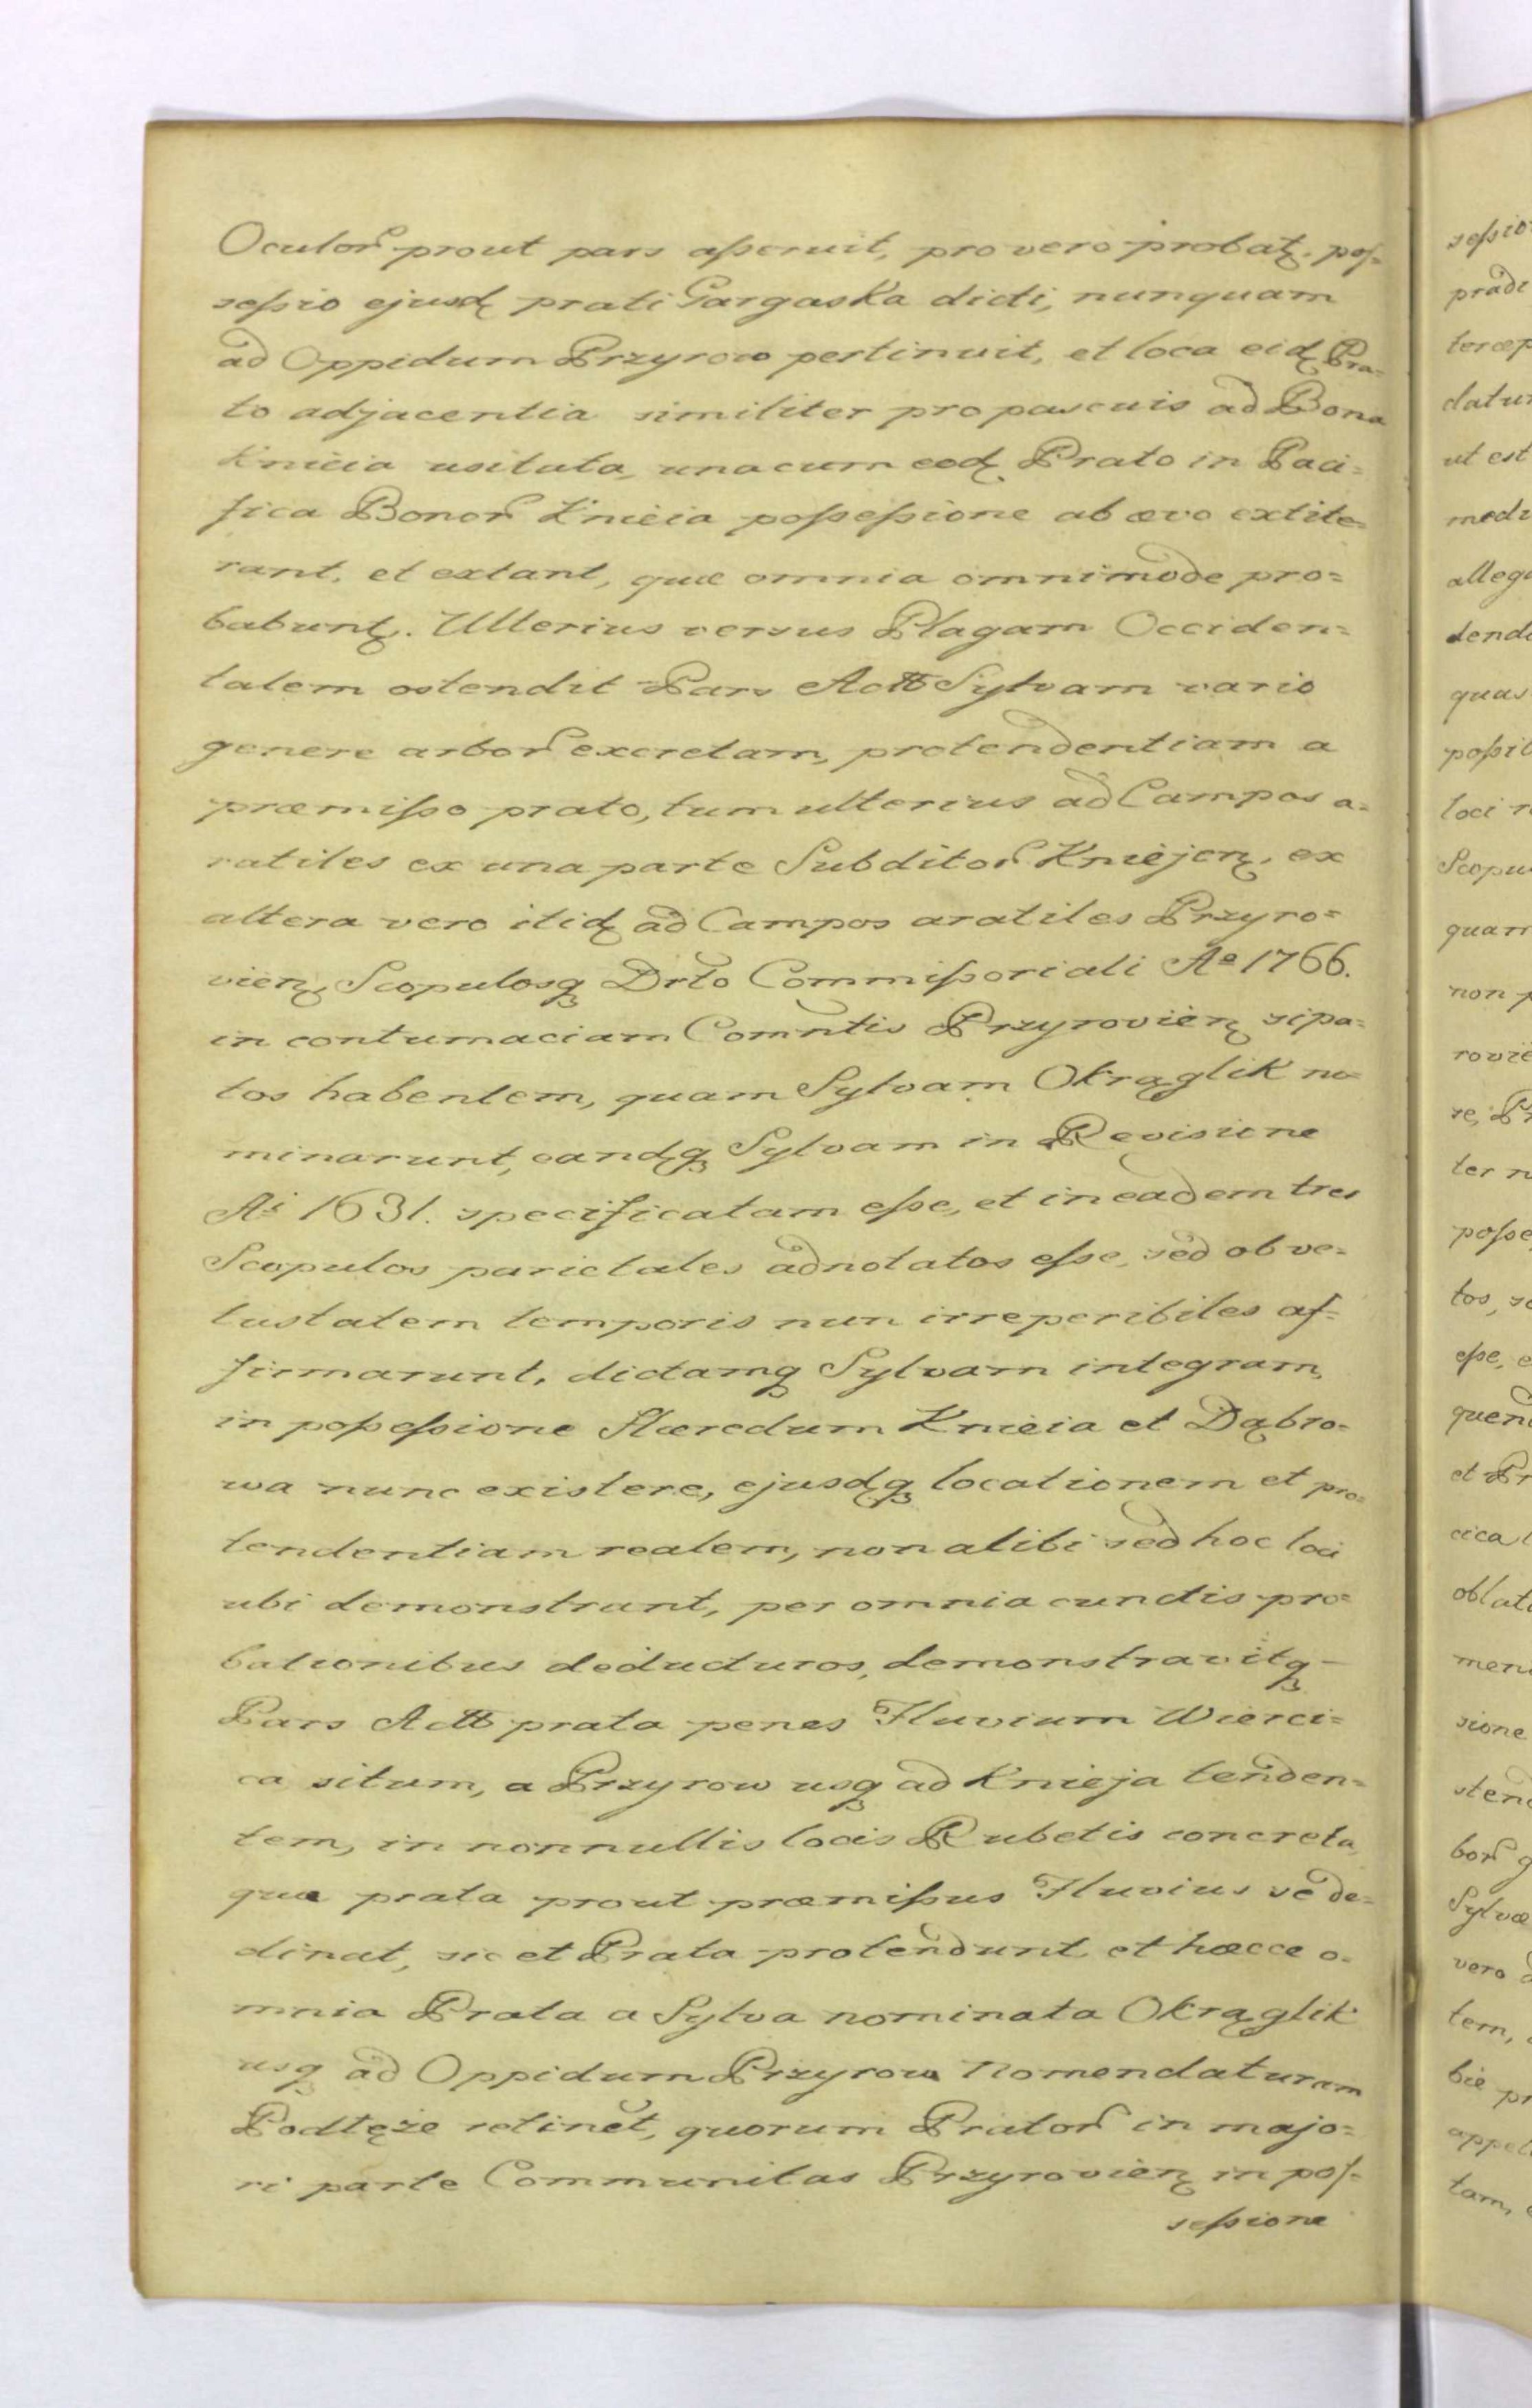 Oculor prout pars aſseruit, pro vero probatꝫ. poſ=
seſsio ejusd prati Gargaska dicti, nunquam
ad Oppidum Przyrow pertinuit, et loca eid Pra=
to adjacentia similiter pro pascuis ad Bona
Knieia usitata, unacum eod Prato in Paci=
fica Bonor Knieia poſseſsione ab ævo extite=
rant, et extant, quæ omnia omnimode pro=
babunt. Ulterius versus Plagam Occiden=
talem ostendit Pars Actt Sylvam vario
genere arbor excretam, protendentiam a
præmiſso prato, tum ulterius ad Campos a=
ratiles ex una parte Subditor Kniejen, ex
altera vero itid ad Campos aratiles Przyro=
vien, Scopulosq Drto Commiſsoriali Aº 1766.
in contumaciam Comntis Przyrovien sipa=
tos habentem, quam Sylvam Okrąglik no=
minarunt, eandq Sylvam in Revisione
Ai 1631. specificatam eſse, et in eadem tres
Scopulos parietales adnotatos eſse, sed ob ve=
tustatem temporis nun irreperibiles af=
firmarunt, dictamq Sylvam integram,
in poſseſsione Hæredum Knieia et Dąbro=
wa nunc existere, ejusdq locationem et pro=
tendentiam realem, non alibi sed hoc loci
ubi demonstrant, per omnia cunctis pro=
bationibus deducturos, demonstravitq
Pars Actt prata penes Fluvium Wierci=
ca situm, a Przyrow usq ad Knieja tenden=
tem, in nonnullis locis Rubetis concreta,
qua prata prout præmiſsus Fluvius se de=
clinat, sic et Prata protendunt et hæcce o=
mnia Prata a Sylva nominata Okrąglik
usq ad Oppidum Przyrow Nomenclaturam
Podtęże retinet, quorum Prator in majo=
ri parte Communitas Przyrovien in poſ=
seſsione